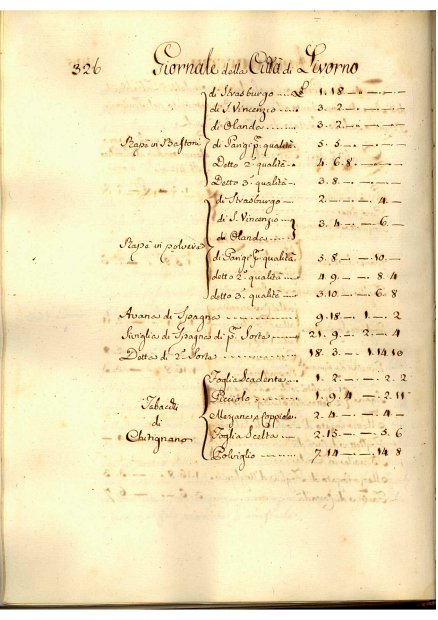 326 Giornale della Città di Livorno
di Strasburgo .... £ 1. 18 — . — . —
di S. Vincenzio .... 3. 2 — . — . —
di Olanda .... 3. 2 — . — . —
Rapè in Bastoni di Parigi p.ª qualità . 5. 5 — . — . —
Detto 2.ª qualità . 4. 6. 8 — . — . —
Detto 3.ª qualità . 3. 8 — . — . —
di Strasburgo .... 2. — . — . 4. —
di S. Vincenzio .... 3. 4 — . — 6. —
di Olanda ....
Rapè in polvere di Parigi p.ª qualità 5. 8 — . — 10. —
detto 2.ª qualità .... 4. 9 — . 8. 4
detto 3.ª qualità .... 3. 10 — . — 6. 8
Avana di Spagna .... 9. 18 — . 1 — . 2
Siviglia di Spagna di p.ª Sorte .... 21. 9 — . 2 — . 4
Detta di 2.ª Sorta .... 18. 3 — . 1. 14. 10
Foglia Scadente .... 1. 2 — . — 2. 2
Picciolo .... 1. 9. 4 — . 2. 11
Tabacchi Mezzane, e Coppiole . 2. 4 — . — 4. —
di Foglia Scelta .... 2. 15 — . — 5. 6
Chitignano Polviglio .... 7. 14 — . — 14. 8